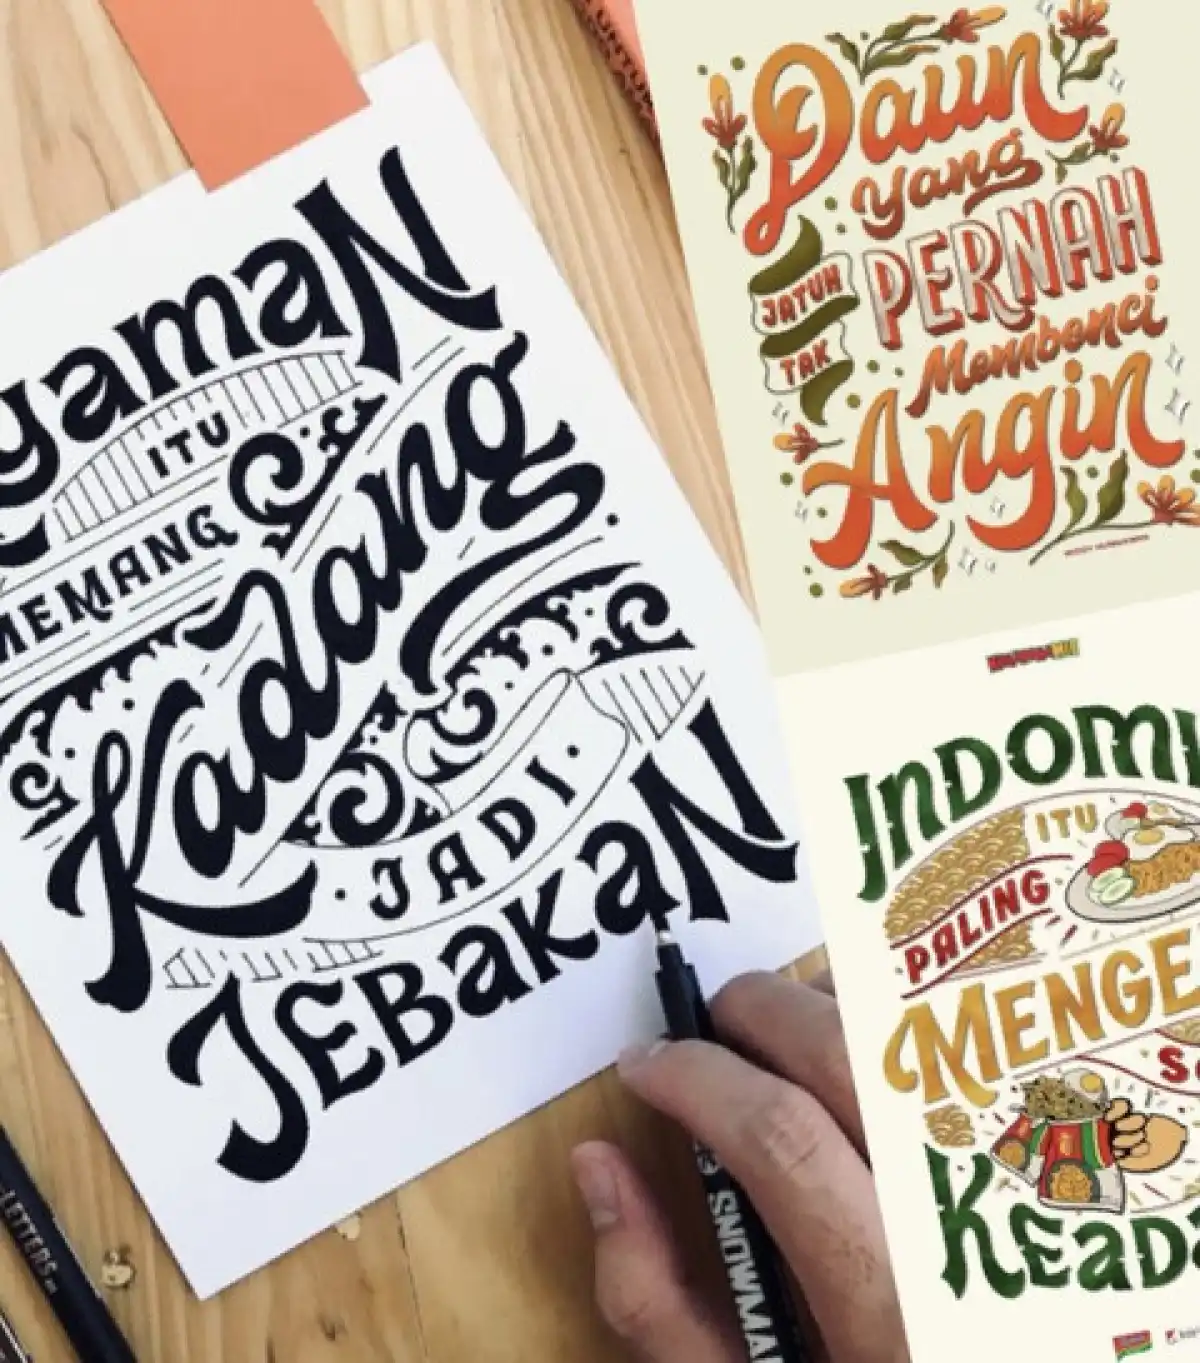 yaman
ITU
MEMANG
Kadang
JADI
JEBakaN
LETTERS
SNOWMAN
UNTUK
Daun
Yang
JATUH
PERNAH
TAK
Membenci
Angin
INDOMI
ITU
PALING
MENGE
KEADA